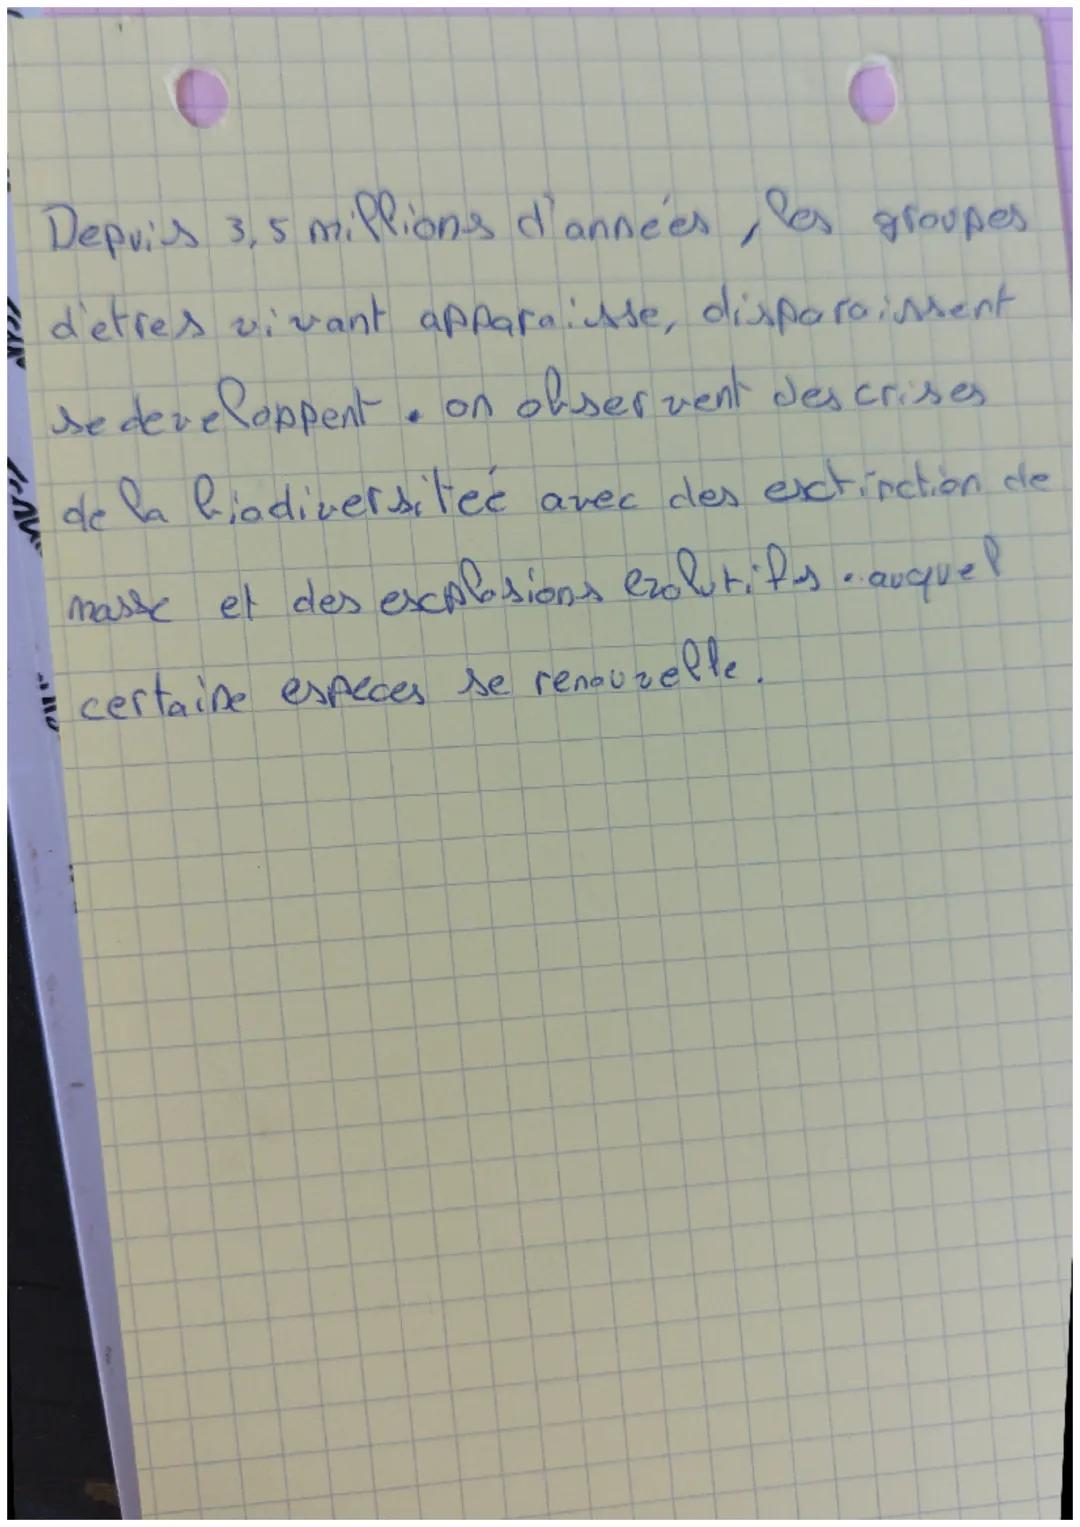 Depuis 3,5 millions d'années, les groupes
d'etres vivant apparaisse, disparaissent
se developpent. on observent des crises
de la biodiversiteé avec des exctinction de
masse et des explosions evolutifs. auquel
certaine especes se renouvelle.